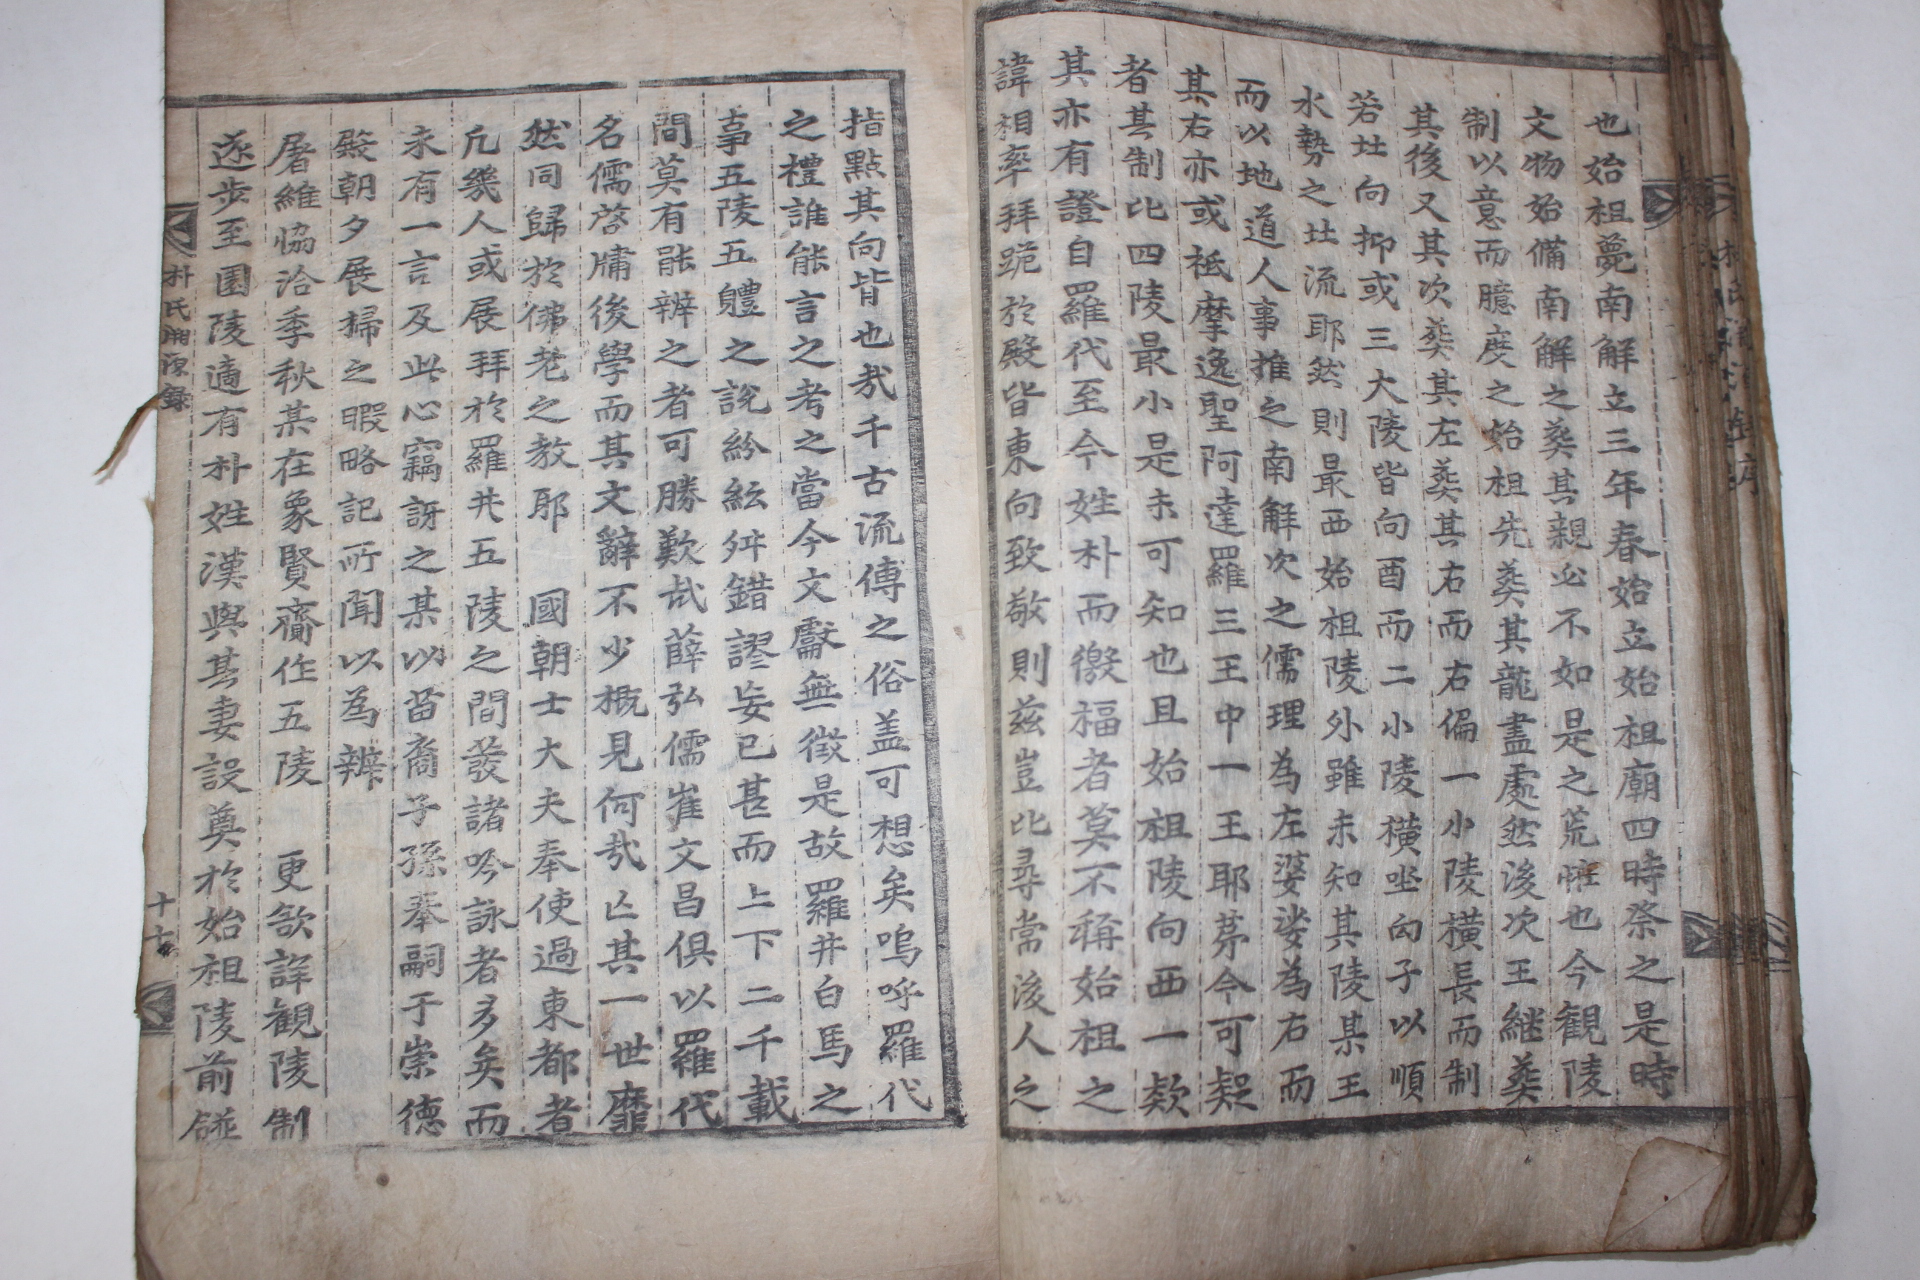 也始祖薨南解立三年春始立始祖廟四時祭之是時
文物始備南解之葬其親必不如是之荒懷也今觀陵
制以意而臆度之始祖先葬其龍盡處然後次王継葬
其後又其次葬其左葬其右而右偏一小陵橫長而制
若㘴向抑或三大陵皆向酉而二小陵橫坐向子以順
水勢之㘴流耶然則最西始祖陵外雖未知其陵某王
而以地道人事推之南解次之儒理為左婆娑為右而
其右亦或祗摩逸聖阿達羅三王中一王耶茅今可疑
者其制比四陵最小是未可知也且始祖陵向西一款
其亦有證自羅代至今姓朴而徼福者莫不稱始祖之
諱相率拜跪於殿皆東向致敬則兹豈比尋常後人之
指點其向背也㢤千古流傳之俗盖可想矣嗚呼羅代
之禮誰能言之考之當今文獻無徵是故羅井白馬之
事五陵五軆之說紛紜舛錯謬妄已甚而上下二千載
間莫有能辨之者可勝歎哉薛弘儒崔文昌俱以羅代
名儒啓牗後學而其文辭不少概見何㢤亾其一世靡
然同歸於佛老之教耶　國朝士大夫奉使過東都者
凢幾人或展拜於羅井五陵之間發諸吟詠者多矣而
未有一言及此心竊訝之某以苗裔子孫奉嗣于崇德
殿朝夕展掃之暇略記所聞以為辨
屠維恊洽季秋某在象賢齋作五陵　更欲詳觀陵制
遂步至園陵適有朴姓漢與其妻設奠於始祖陵前碰
朴氏淵源錄
十六